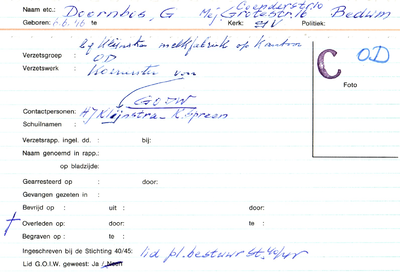 Naam etc.: Doornbos, G Mej. Coendersstr.10 Bedum
Grotestr.16
Geboren: te Kerk: 21V Politiek:
bij Kleijnstra melkfabriek op kantoor
Verzetsgroep : OD
Verzetswerk : Koerierster van
GOOW
C OD
Foto
Contactpersonen: HJ Kleijnstra -
Schuilnamen :
Verzetsrapp. ingel. dd. : bij:
Naam genoemd in rapp.:
op bladzijde:
Gearresteerd op : door:
Gevangen gezeten in :
Bevrijd op : uit : door:
Overleden op: door: te :
Begraven op : te :
Ingeschreven bij de Stichting 40/45: lid pl. bestuur St. 40/45
Lid G.O.I.W. geweest: Ja / Neen